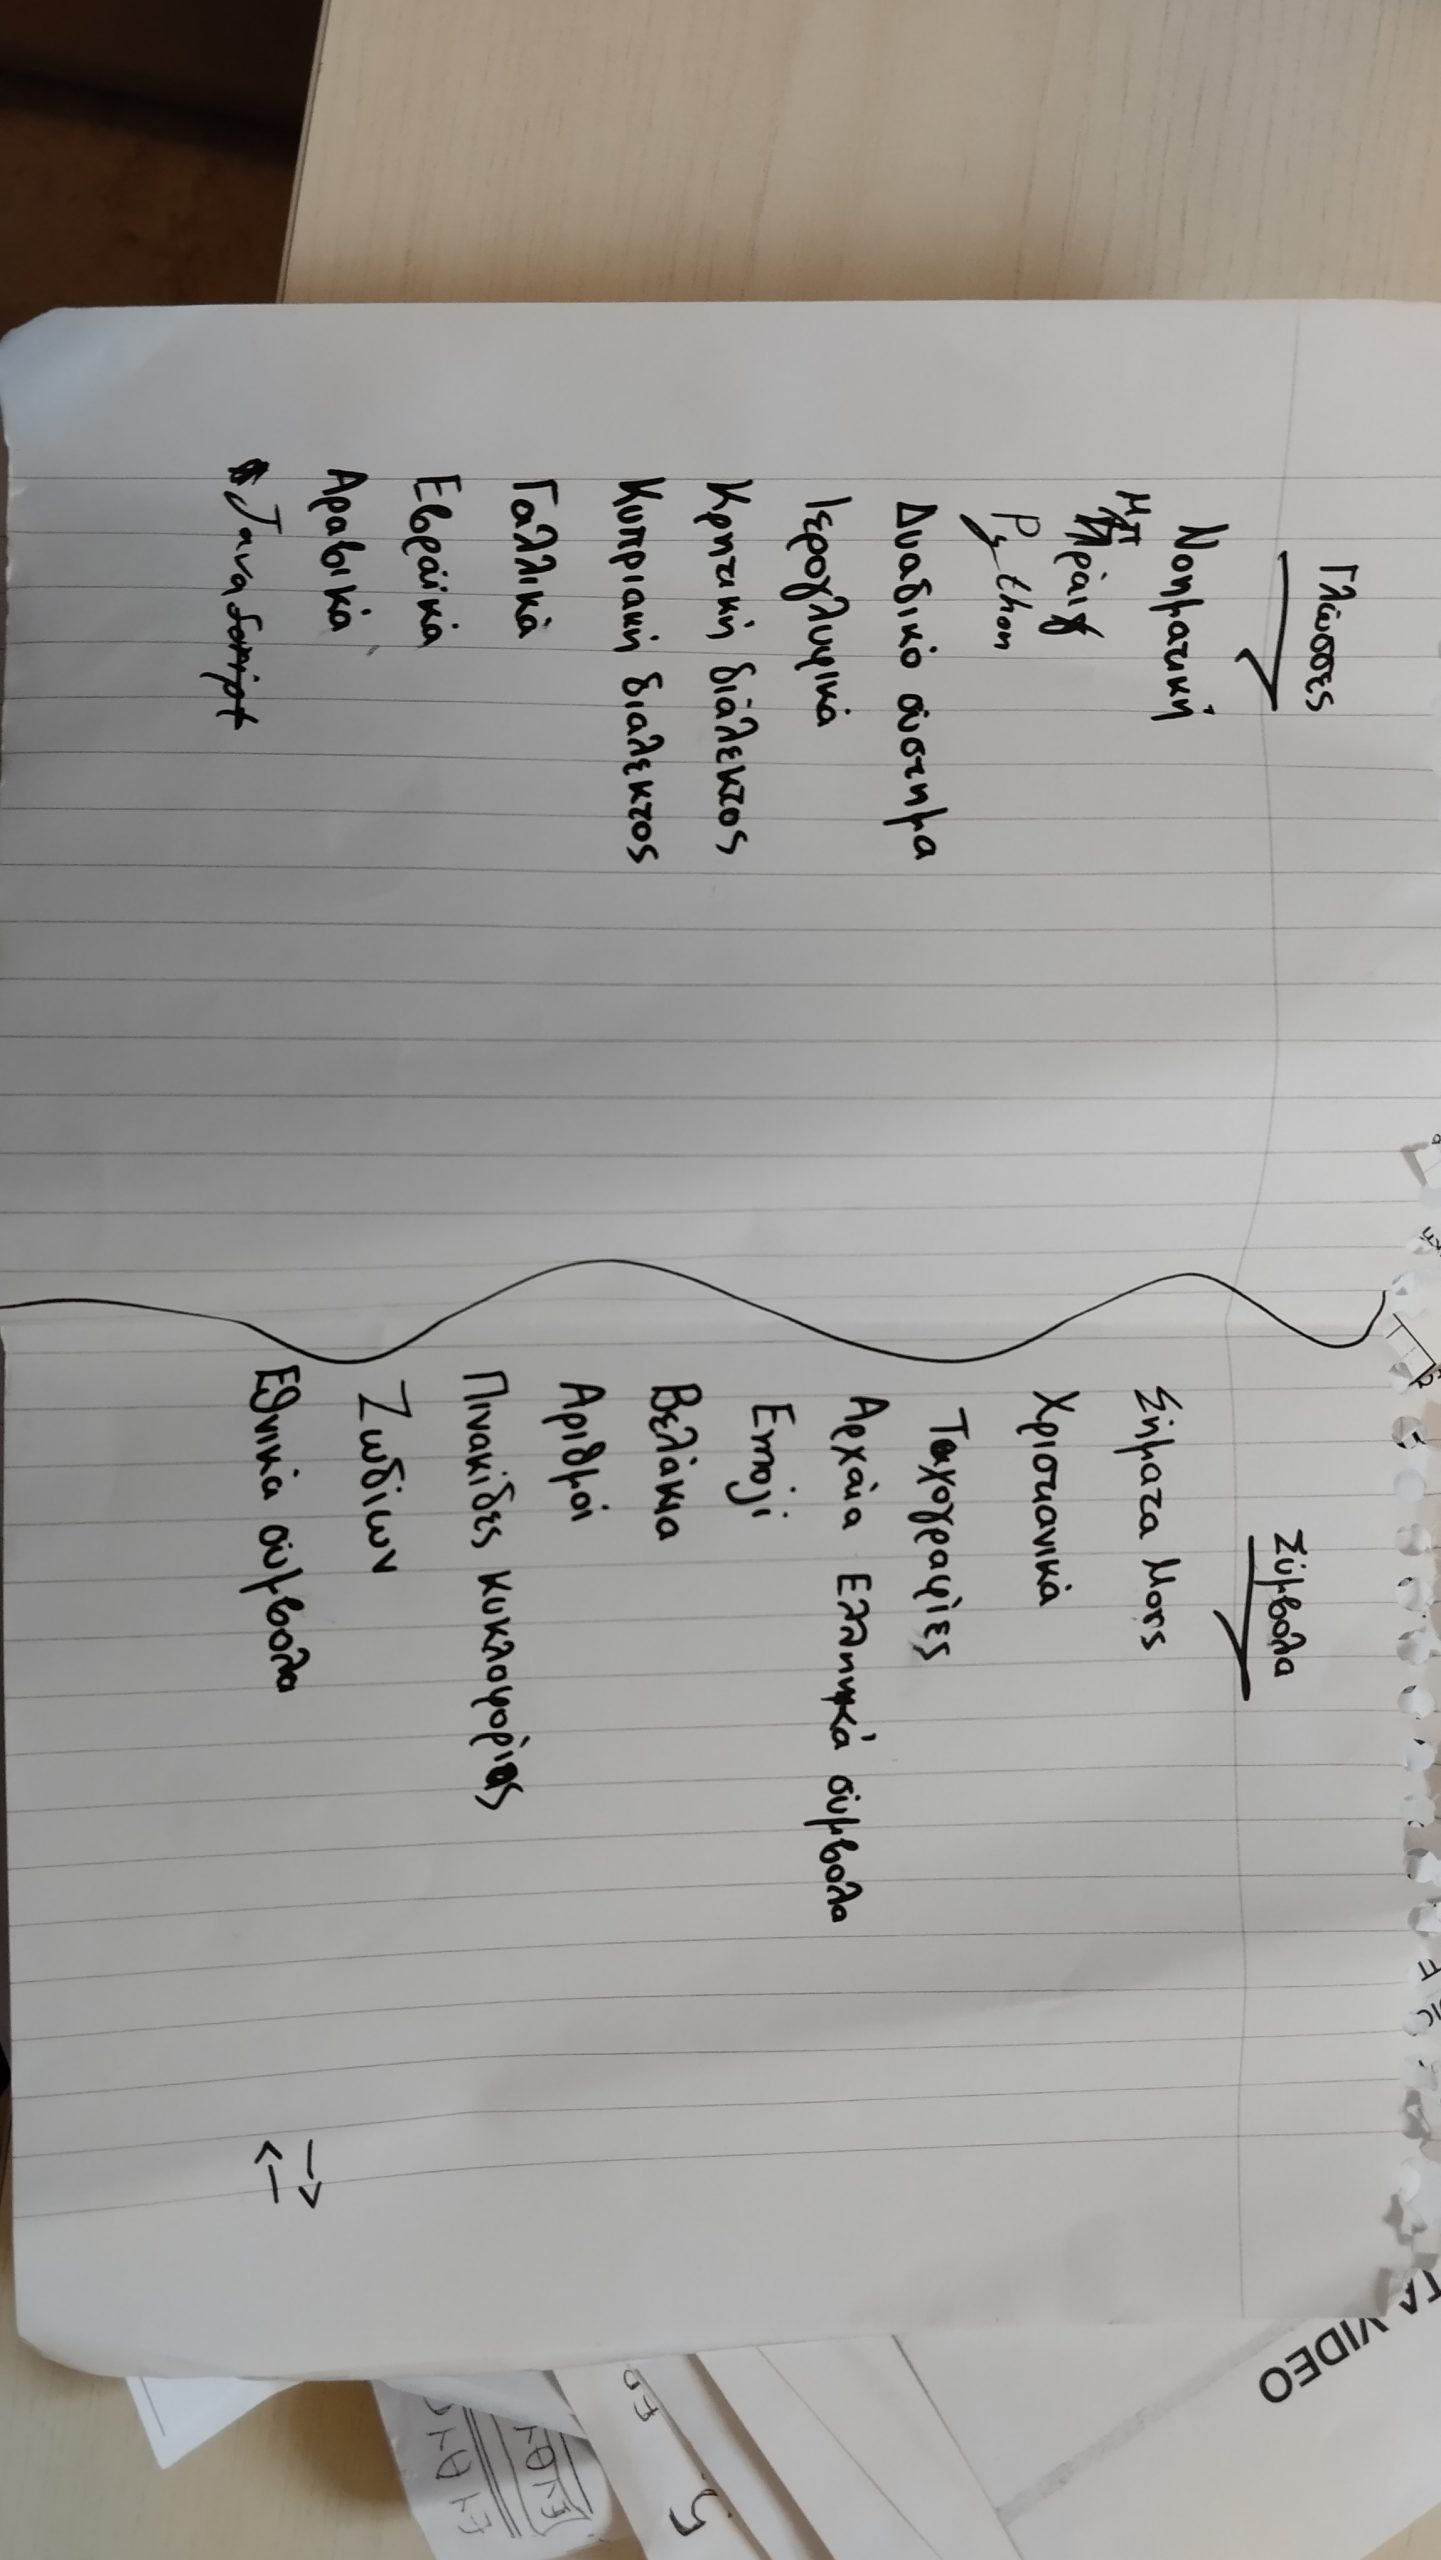 Γλώσσες
Νοηματική
Μπράιγ
Python
Δυαδικό σύστημα
Ιερογλυφικά
Κρητική διάλεκτος
Κυπριακή διάλεκτος
Γαλλικά
Εβραϊκά
Αραβικά
Javascript
Σύμβολα
Σήματα Μορς
Χριστιανικά
Ταχογραφίες
Αρχάια Ελληνικά σύμβολα
Emoji
Βελάκια
Αριθμοί
Πινακίδες κυκλοφορίας
Ζωδίων
Εθνικά σύμβολα
→
←
VIDEO